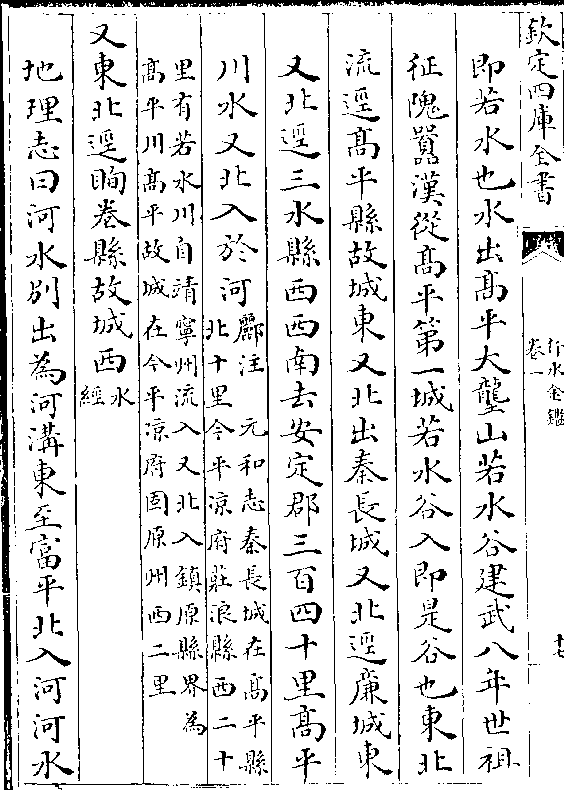 欽定四庫全書
行水金鑑
卷一
十七
即若水也水出髙平大壟山若水谷建武八年世祖
征隗囂漢從髙平第一城若水谷入即是谷也東北
流逕髙平縣故城東又北出秦長城又北逕亷城東
又北逕三水縣西西南去安定郡三百四十里髙平
川水又北入於河酈注　元和志秦長城在髙平縣
北十里今平凉府莊浪縣西二十
里有若水川自靖寧州流入又北入鎮原縣界為
髙平川髙平故城在今平凉府固原州西二里
又東北逕眴卷縣故城西水
經
地理志曰河水别出為河溝東至富平北入河河水